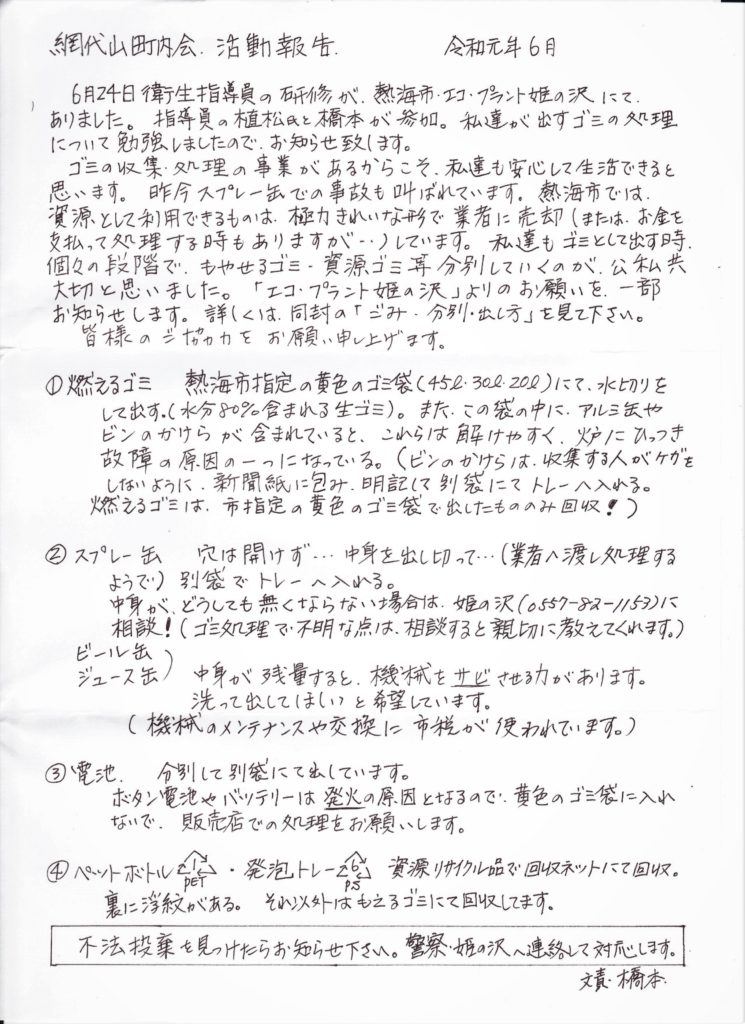 網代山町内会.活動報告. 令和元年6月
6月24日衛生指導員の研修が、熱海市・エコ・プラント姫の沢にて、
ありました。指導員の植松氏と橋本が参加。私達が出すゴミの処理
について勉強しましたので、お知らせ致します。
ゴミの収集・処理の事業があるからこそ、私達も安心して生活できると
思います。昨今スプレー缶での事故も叫ばれています。熱海市では、
資源として利用できるものは、極力きれいな形で業者に売却(または、お金を
支払って処理する時もありますが…)しています。私達もゴミとして出す時、
個々の段階で、もやせるゴミ・資源ゴミ等分別していくのが、公私共
大切と思いました。「エコ・プラント姫の沢」よりのお願いを、一部
お知らせします。詳しくは、同封の「ごみ・分別・出し方」を見て下さい。
皆様のご協力をお願い申し上げます。
①燃えるゴミ 熱海市指定の黄色のゴミ袋(45ℓ・30ℓ・20ℓ)にて、水切りを
して出す。(水分80%含まれる生ゴミ)。また、この袋の中に、アルミ缶や
ビンのかけらが含まれていると、これらは解けやすく、炉にひっつき
故障の原因の一つになっている。(ビンのかけらは、収集する人がケガを
しないように、新聞紙に包み、明記して別袋にてトレーへ入れる。
燃えるゴミは、市指定の黄色のゴミ袋で出したもののみ回収!)
②スプレー缶 穴は開けず…中身を出し切って…(業者へ渡し処理する
ようで)別袋でトレーへ入れる。
中身が、どうしても無くならない場合は、姫の沢(0557-82-1153)に
相談!(ゴミ処理で不明な点は、相談すると親切に教えてくれます。)
ビール缶
ジュース缶) 中身が残量すると、機械をサビさせる力があります。
洗って出してほしいと希望しています。
(機械のメンテナンスや交換に市税が使われています。)
③電池. 分別して別袋にて出しています。
ボタン電池やバッテリーは発火の原因となるので、黄色のゴミ袋に入れ
ないで、販売店での処理をお願いします。
④ペットボトル 1 PET ・発泡トレー 6 PS 資源リサイクル品で回収ネットにて回収。
裏に浮紋がある。それ以外はもえるゴミにて回収してます。
不法投棄を見つけたらお知らせ下さい。警察・姫の沢へ連絡して対応します。
文責・橋本.